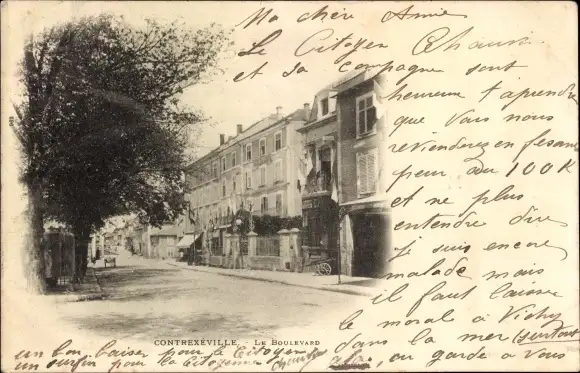 Ma chère Amie
Le Citoyen Chauvin
et sa compagne sont
heureux d'aprendre
que Vous nous
reviendrez en fesant
peur au 100 K
et ne plus
entendre dire
je suis encore
malade mais
il faut laisser
le moral a Vichy
dans la mer (surtout
ou garde a Vous
un bon baiser pour le Citoyen
un pour la Citoyenne
CONTREXÉVILLE. - LE BOULEVARD